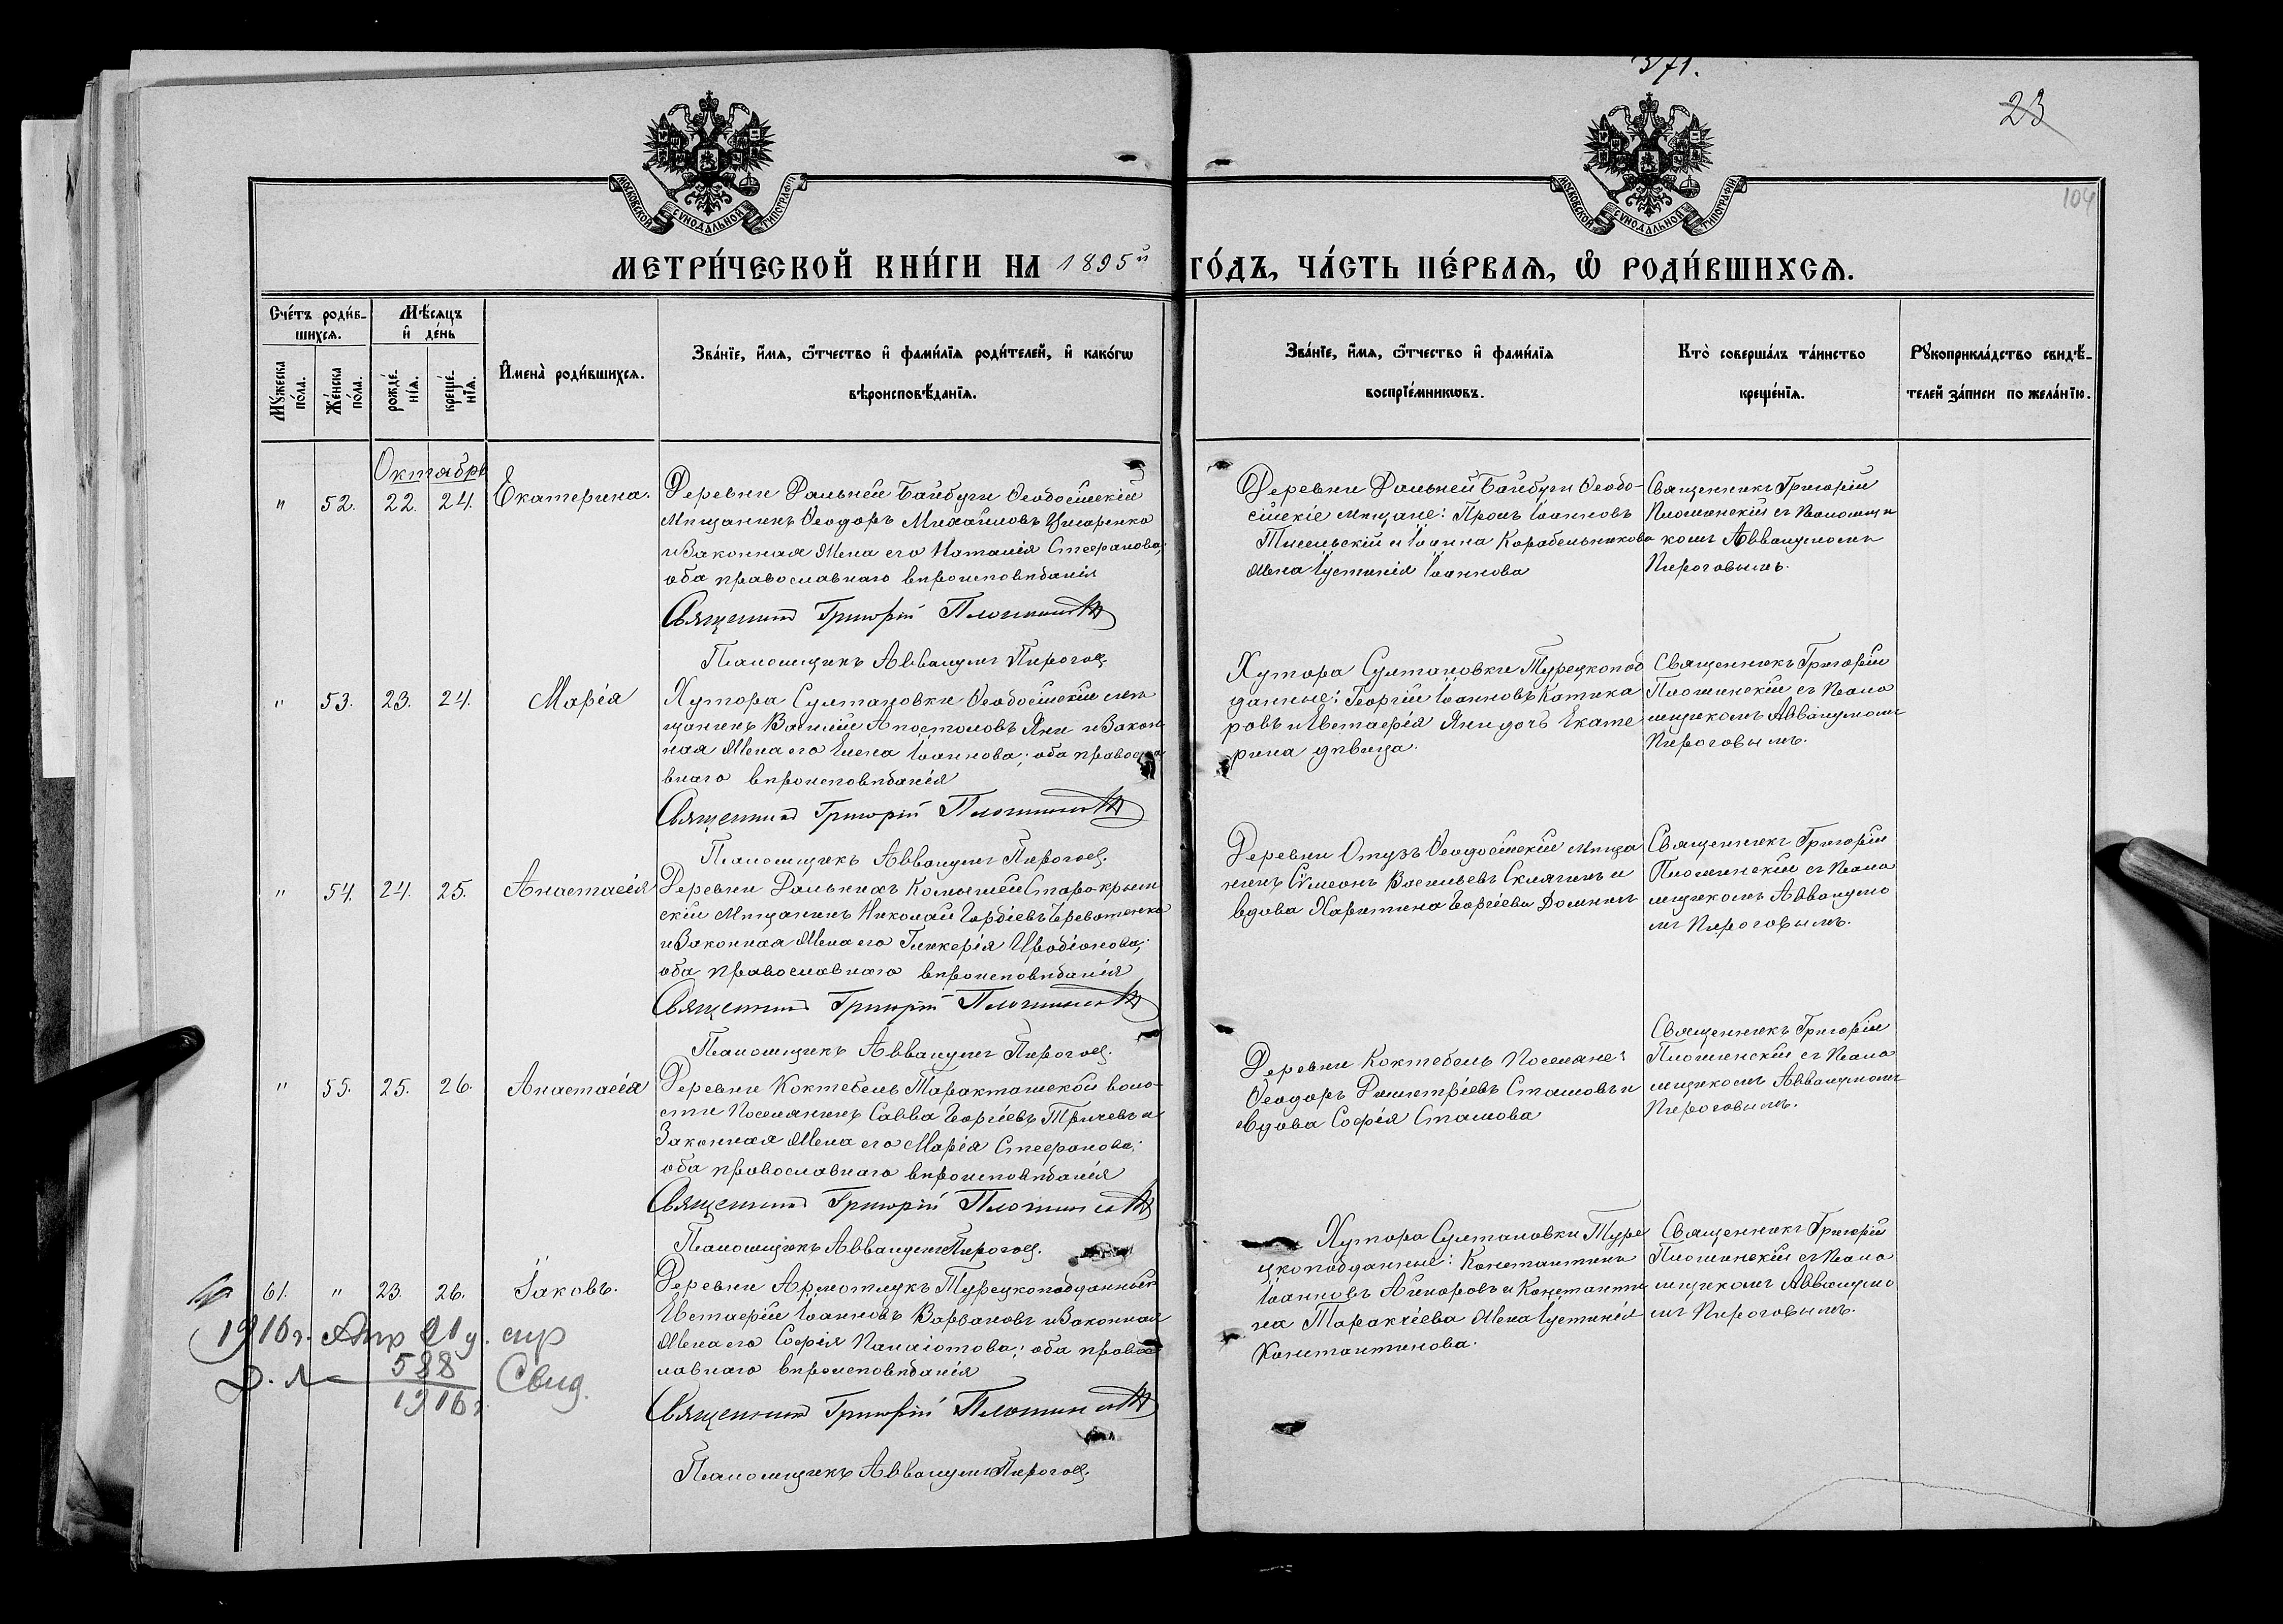 371.
23
104
МОСКОВСКОЙ СѴНОДАЛЬНОЙ ТИПОГРАФІИ
МОСКОВСКОЙ СѴНОДАЛЬНОЙ ТИПОГРАФІИ
МЕТРИ́ЧЕСКОЙ КНИ́ГИ НА 1895й ГО́ДЪ, ЧА́СТЬ ПЕ́РВАЯ, Ѡ҆ РОДИ́ВШИХСЯ.
Сче́тъ роди́в-
шихся.
Мѣ́сяцъ
и҆ де́нь
Мꙋ́жеска по́ла.
Же́нска по́ла.
рожде́-
нїѧ.
креще́-
нїѧ.
И҆мена̀ роди́вшихсѧ.
Зва́нїе, и҆́мѧ, ѻ҆́тчество и҆ фами́лїѧ роди́телей, и҆ како́гѡ
вѣроисповѣ́данїѧ.
Зва́нїе, и҆́мѧ, ѻ҆́тчество и҆ фами́лїѧ
воспрїе́мникѡвъ.
Кто̀ соверша́лъ та́инство
креще́нїѧ.
Рꙋкоприкла́дство свидѣ́-
телей за́писи по жела́нїю.
Октябрь
" 52. 22. 24. Екатерина.
Деревни Дальней Байбуги Ѳеодосійскій
Мѣщанинъ Ѳеодоръ Михайловъ
и Законная Жена его Наталія Стефанова;
оба православнаго вѣроисповѣданія
Священникъ Григорій
Псаломщикъ Аввакумъ Пироговъ.
Деревни Дальней Байбуги Ѳеодо-
сійскіе мѣщане: Іоанновъ
и Іоанна Корабельникова
жена Іустинія Іоаннова
Священникъ Григорій
съ Псаломщи
комъ Аввакумомъ
Пироговымъ.
" 53. 23. 24. Марія
Хутора Султановки Ѳеодосійскій мѣ
щанинъ Василій Апостоловъ Яни и Закон
ная Жена его Елена Іоаннова; оба правосла
внаго вѣроисповѣданія
Священникъ Григорій
Псаломщикъ Аввакумъ Пироговъ.
Хутора Султановки Турецкопод
данные: Георгій Іоанновъ Катика
ровъ и Евстафія Яни дочь Екате
рина дѣвица.
Священникъ Григорій
съ Псало
мщикомъ Аввакумомъ
Пироговымъ.
" 54. 24. 25. Анастасія
Деревни Дальнихъ Камышей Старокрым
скій Мѣщанинъ Николай Гордіевъ
и Законная Жена его Гликерія Иродіонова;
оба православнаго вѣроисповѣданія
Священникъ Григорій
Псаломщикъ Аввакумъ Пироговъ.
Деревни Отузъ Ѳеодосійскій мѣща
нинъ Сѵмеонъ Васильевъ и
вдова Харитина Георгіева
Священникъ Григорій
съ Псало
мщикомъ Аввакумо
мъ Пироговымъ.
" 55. 25. 26. Анастасія
Деревни Коктебель Таракташской воло-
сти Поселянинъ Савва Георгіевъ и
Законная Жена его Марія Стефанова;
оба православнаго вѣроисповѣданія
Священникъ Григорій
Псаломщикъ Аввакумъ Пироговъ.
Деревни Коктебель Поселяне:
Ѳеодоръ Димитріевъ Стамовъ и
вдова Софія Стамова
Священникъ Григорій
съ Псало
мщикомъ Аввакумомъ
Пироговымъ.
61. " 23. 26. Іаковъ.
Деревни Армотлукъ Турецкоподданный
Евстафій Іоанновъ и Законная
Жена его Софія Панаіотова; оба право
лавнаго вѣроисповѣданія
Священникъ Григорій
Псаломщикъ Аввакумъ Пироговъ.
Хутора Султановки Туре
цкоподданные: Константинъ
Іоанновъ и Константи
на Жена Іустинія
Константинова.
Священникъ Григорій
съ Псало
мщикомъ Аввакумо
мъ Пироговымъ.
1916 г. Апр
588
1916 г.
Свид.